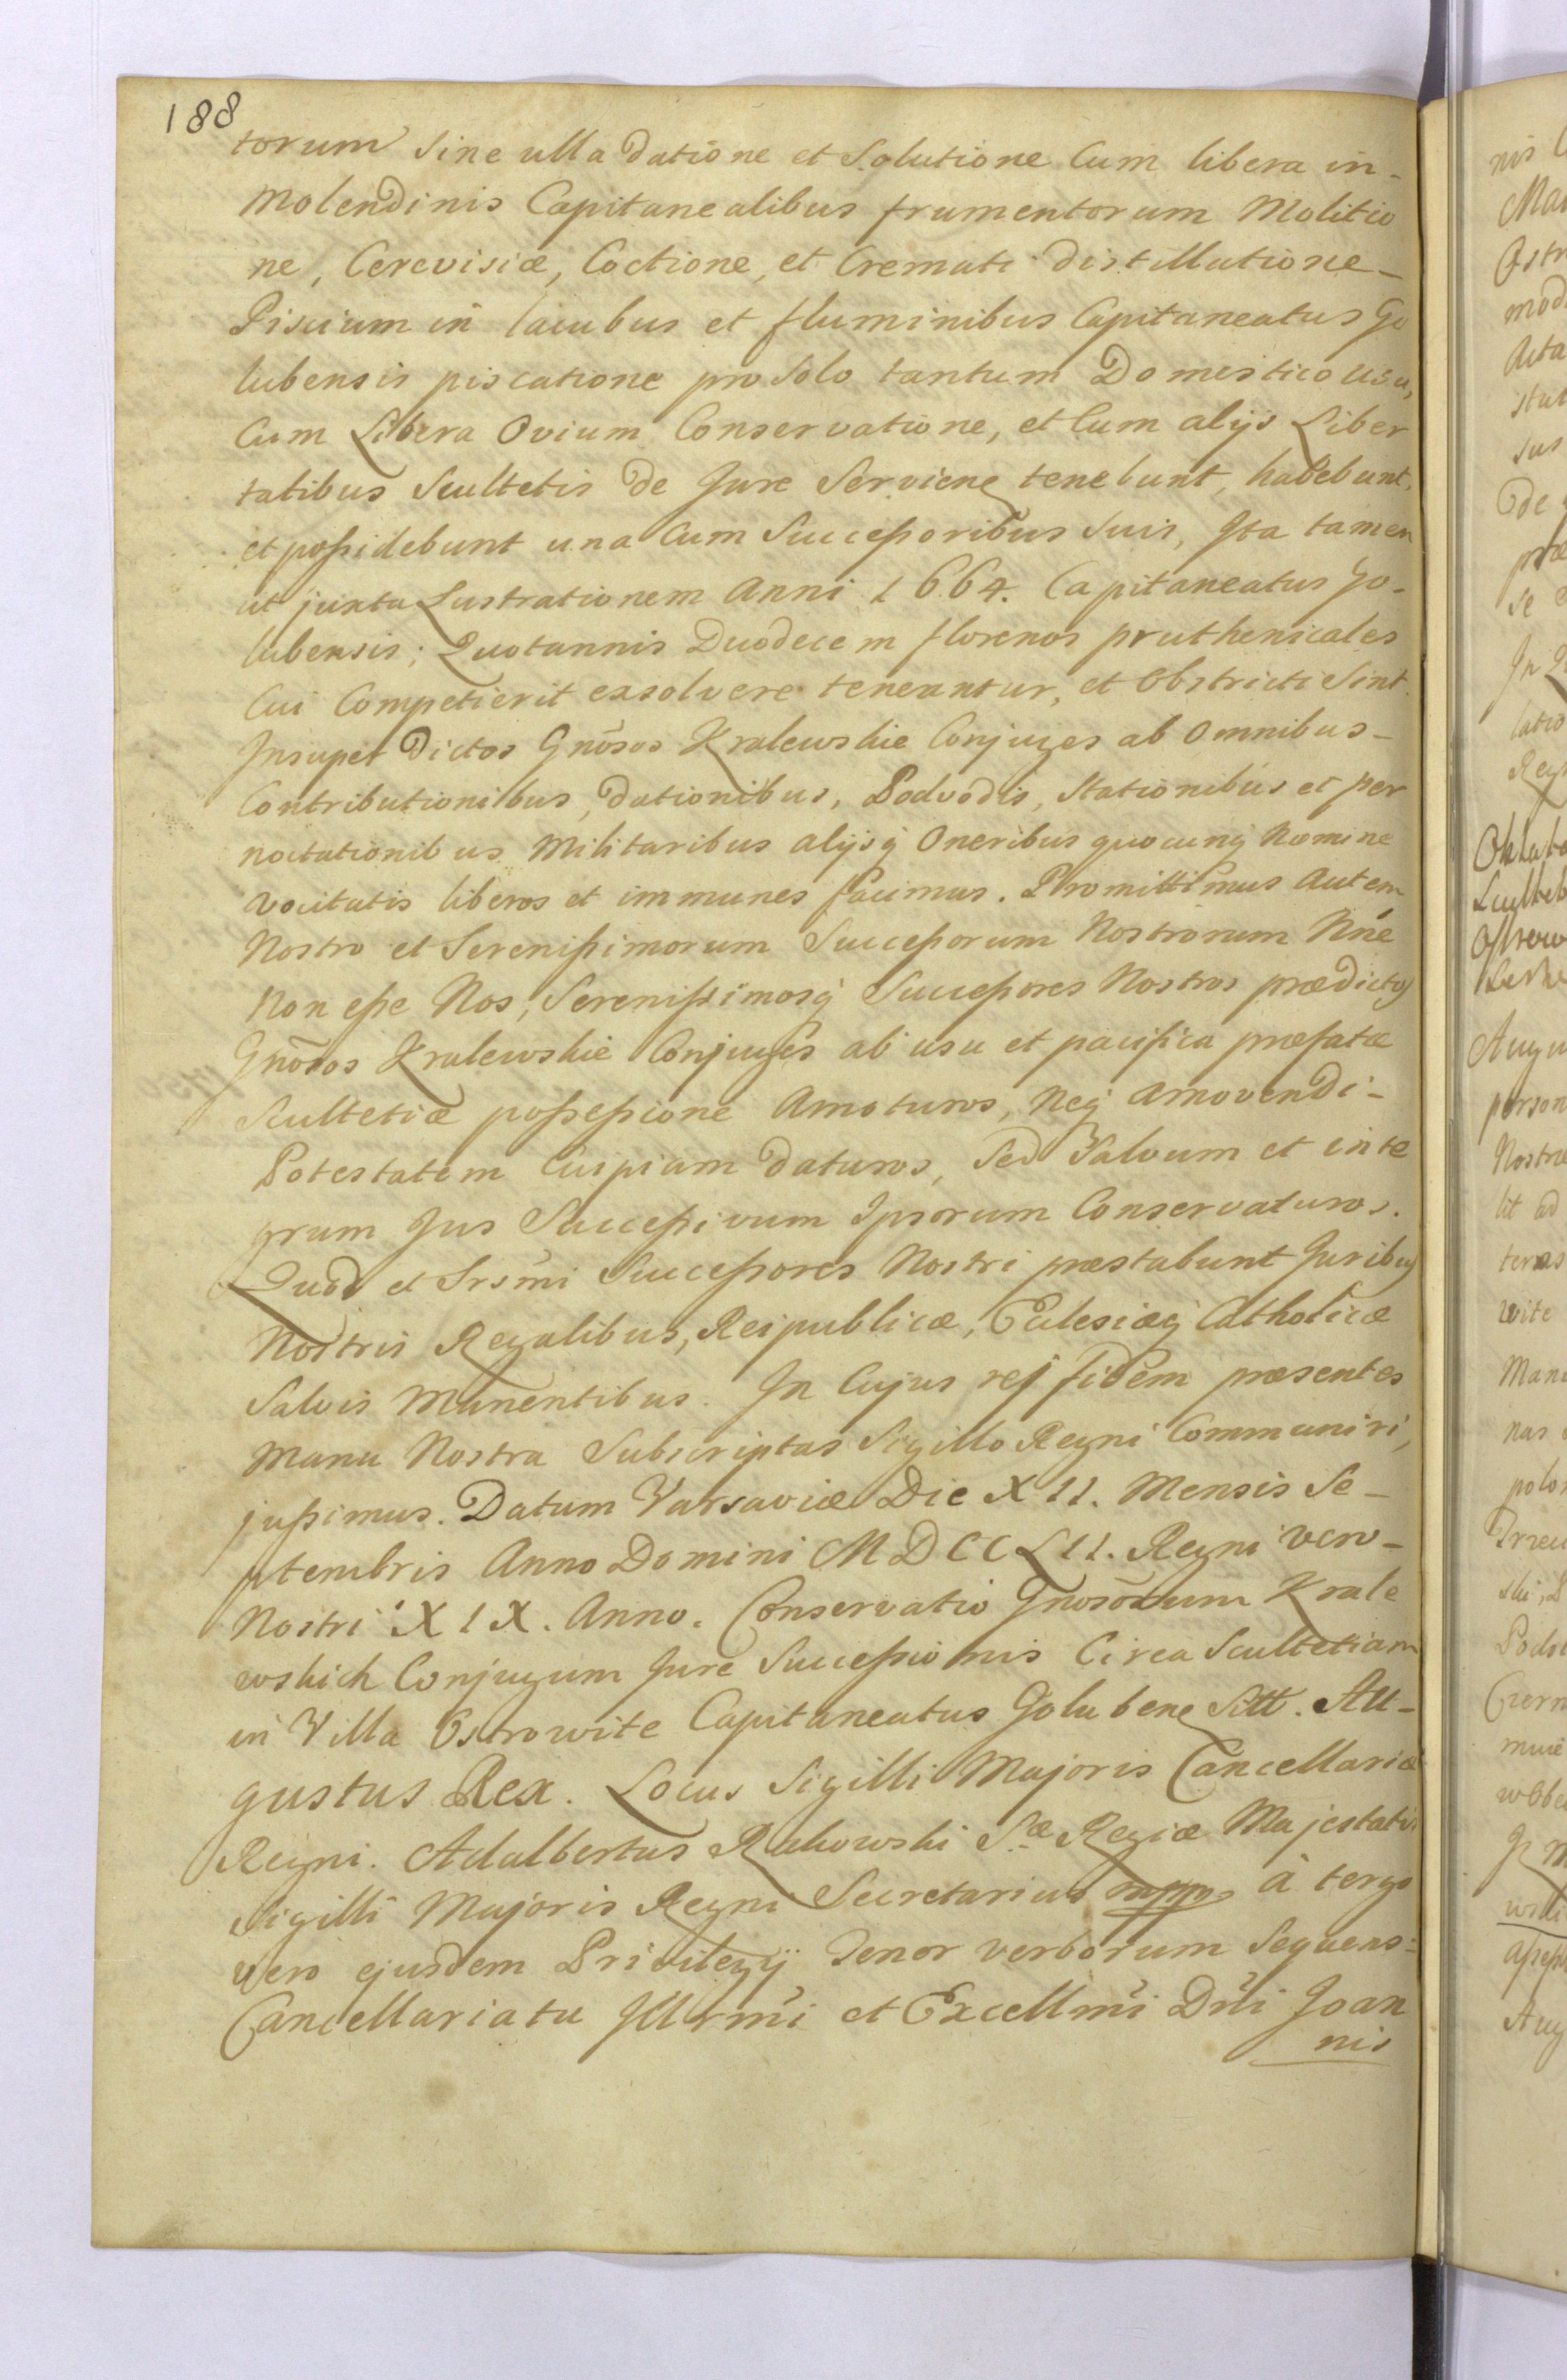 188
torum sine ulla datione et Solutione Cum libera in-
Molendinis Capitanealibus frumentorum Molitio
ne, Cerevisiæ, Coctione, et Cremati distillatione-
Piscium in lacubus et fluminibus Capitaneatus Go
lubensis piscatione pro Solo tantum Domestico usu,
Cum Libera Ovium Conservatione, et Cum alijs Liber
tatibus Scultetis de Jure Servienꝫ tenebunt, habebunt,
et poßidebunt una Cum Succeßoribus Suis, Ita tamen
ut juxta Lustrationem Anni 1664. Capitaneatus Go-
lubensis; Quotannis Duodecem florenos pruthenicales
Cui Competierit exsolvere teneantur, et Obstricti Sint.
Insuper Dictos Gnõsos Kralewskie Conjuges ab Omnibus-
Contributionibus, dationibus, Podvodis, Stationibus et per
noctationibus Militaribus alijsq; Oneribus quocunq; Nomine
vocitatis liberos et immunes facimus. Promittimus Autem
Nostro et Serenißimorum Succeßorum Nostrorum Nñe
Non eße Nos, Serenißimosq; Succeßores Nostros prædictos
Gnõsos Kralewskie Conjuges ab usu et pacifica præfatæ
Scultetiæ poßeßione Amoturos, Neq; amovendi-
Potestatem Cuipiam daturos, Sed Salvum et inte
grum Jus Succeßivum Ipsorum Conservaturos.
Quod et Srsm̃i Succeßores Nostri præstabunt Juribus
Nostris Regalibus, Reipublicæ, Eclesiæq; Catholicæ
Salvis Manentibus. In Cujus rej fidem præsentes
Manu Nostra Subscriptas Sigillo Regni Communiri,
jußimus. Datum Varsaviæ Die XII. Mensis Se-
ptembris Anno Domini MDCCLII. Regni vero-
Nostri XIX. Anno. Conservatio Gnosõrum Krale
wskich Conjugum Jure Succeßionis Circa Scultetiam
in Villa Ostrowite Capitaneatus Golubenꝫ Sitt. Au-
gustus Rex. Locus Sigilli Majoris Cancellariæ
Regni. Adalbertus Rakowski S.æ Regiæ Majestatis
Sigilli Majoris Regni Secretarius mpp. à tergo
vero ejusdem Privilegij Tenor verborum Sequens:
Cancellariatu Illrm̃i et Excellm̃i Dñi Joan
nis